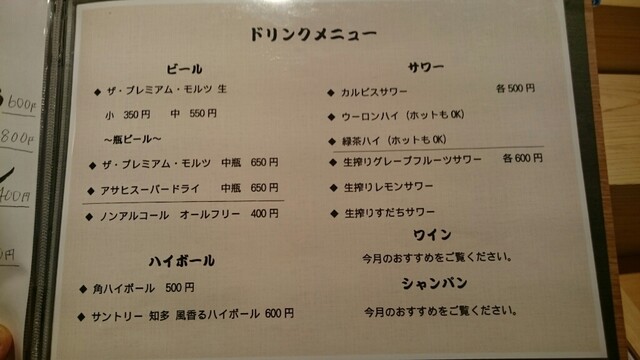 ドリンクメニュー
ビール
◆ ザ・プレミアム・モルツ 生
小 350円 中 550円
～瓶ビール～
◆ ザ・プレミアム・モルツ 中瓶 650円
◆ アサヒスーパードライ 中瓶 650円
◆ ノンアルコール オールフリー 400円
ハイボール
◆ 角ハイボール 500円
◆ サントリー 知多 風香るハイボール 600円
サワー
◆ カルピスサワー 各500円
◆ ウーロンハイ (ホットもOK)
◆ 緑茶ハイ (ホットもOK)
◆ 生搾りグレープフルーツサワー 各600円
◆ 生搾りレモンサワー
◆ 生搾りすだちサワー
ワイン
今月のおすすめをご覧ください。
シャンパン
今月のおすすめをご覧ください。
600円
800円
400円
円